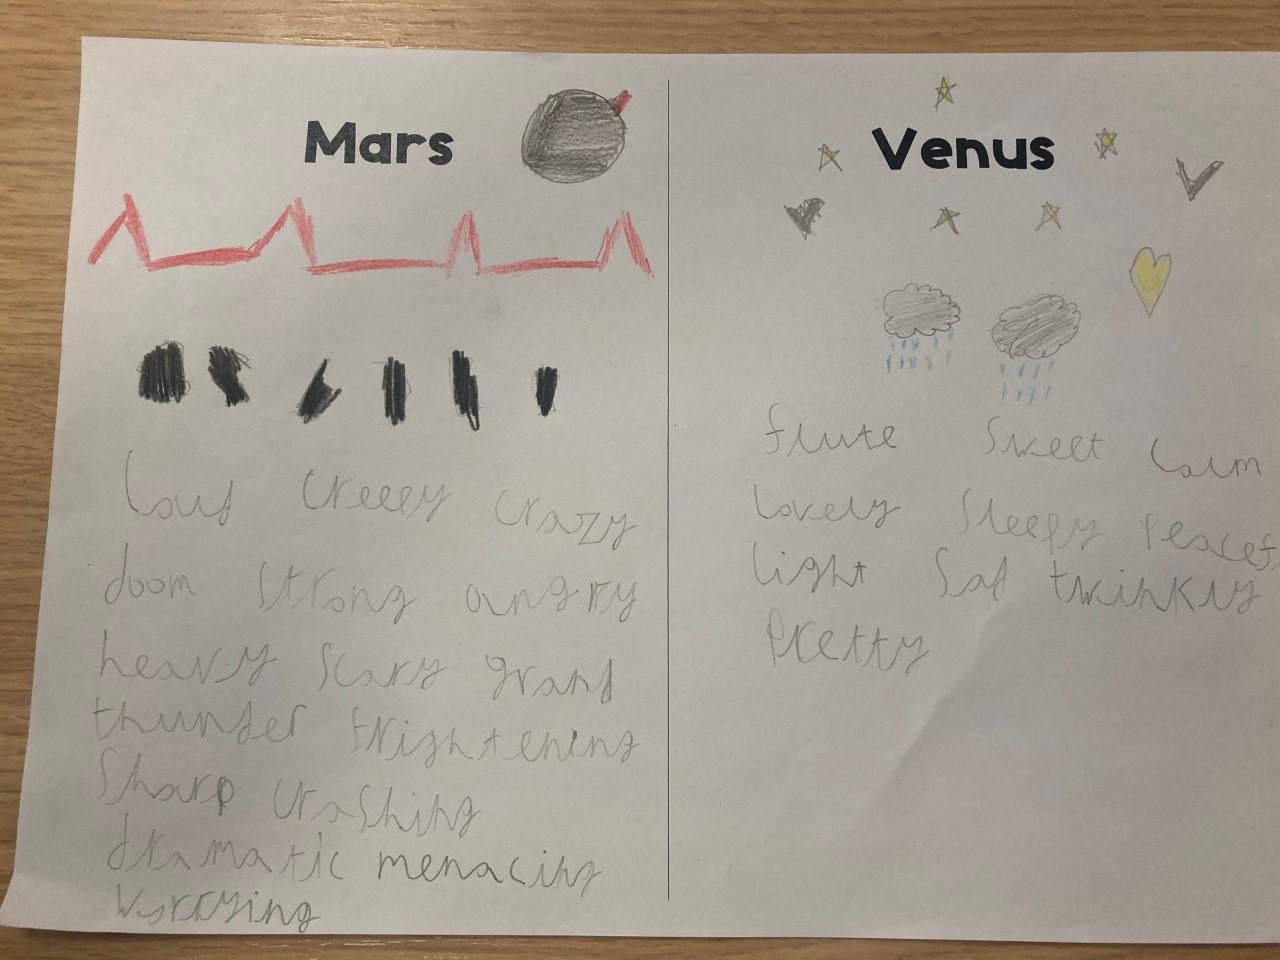 Mars
loud creepy crazy
doom strong angry
heavy scary grand
thunder frightening
Sharp crashing
dramatic menacing
Worrying
Venus
flute Sweet Calm
lovely Sleepy Peacef
light Sad twinkly
Pretty